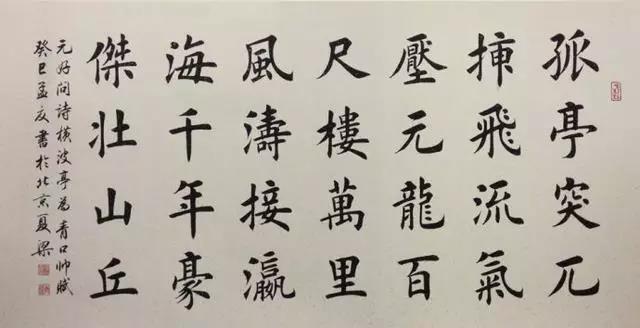 孤亭突兀
揷飛流氣
壓元龍百
尺樓萬里
風濤接瀛
海千年豪
傑壯山丘
元好问诗横波亭为青口帅赋
癸巳孟夏书於北京夏梁